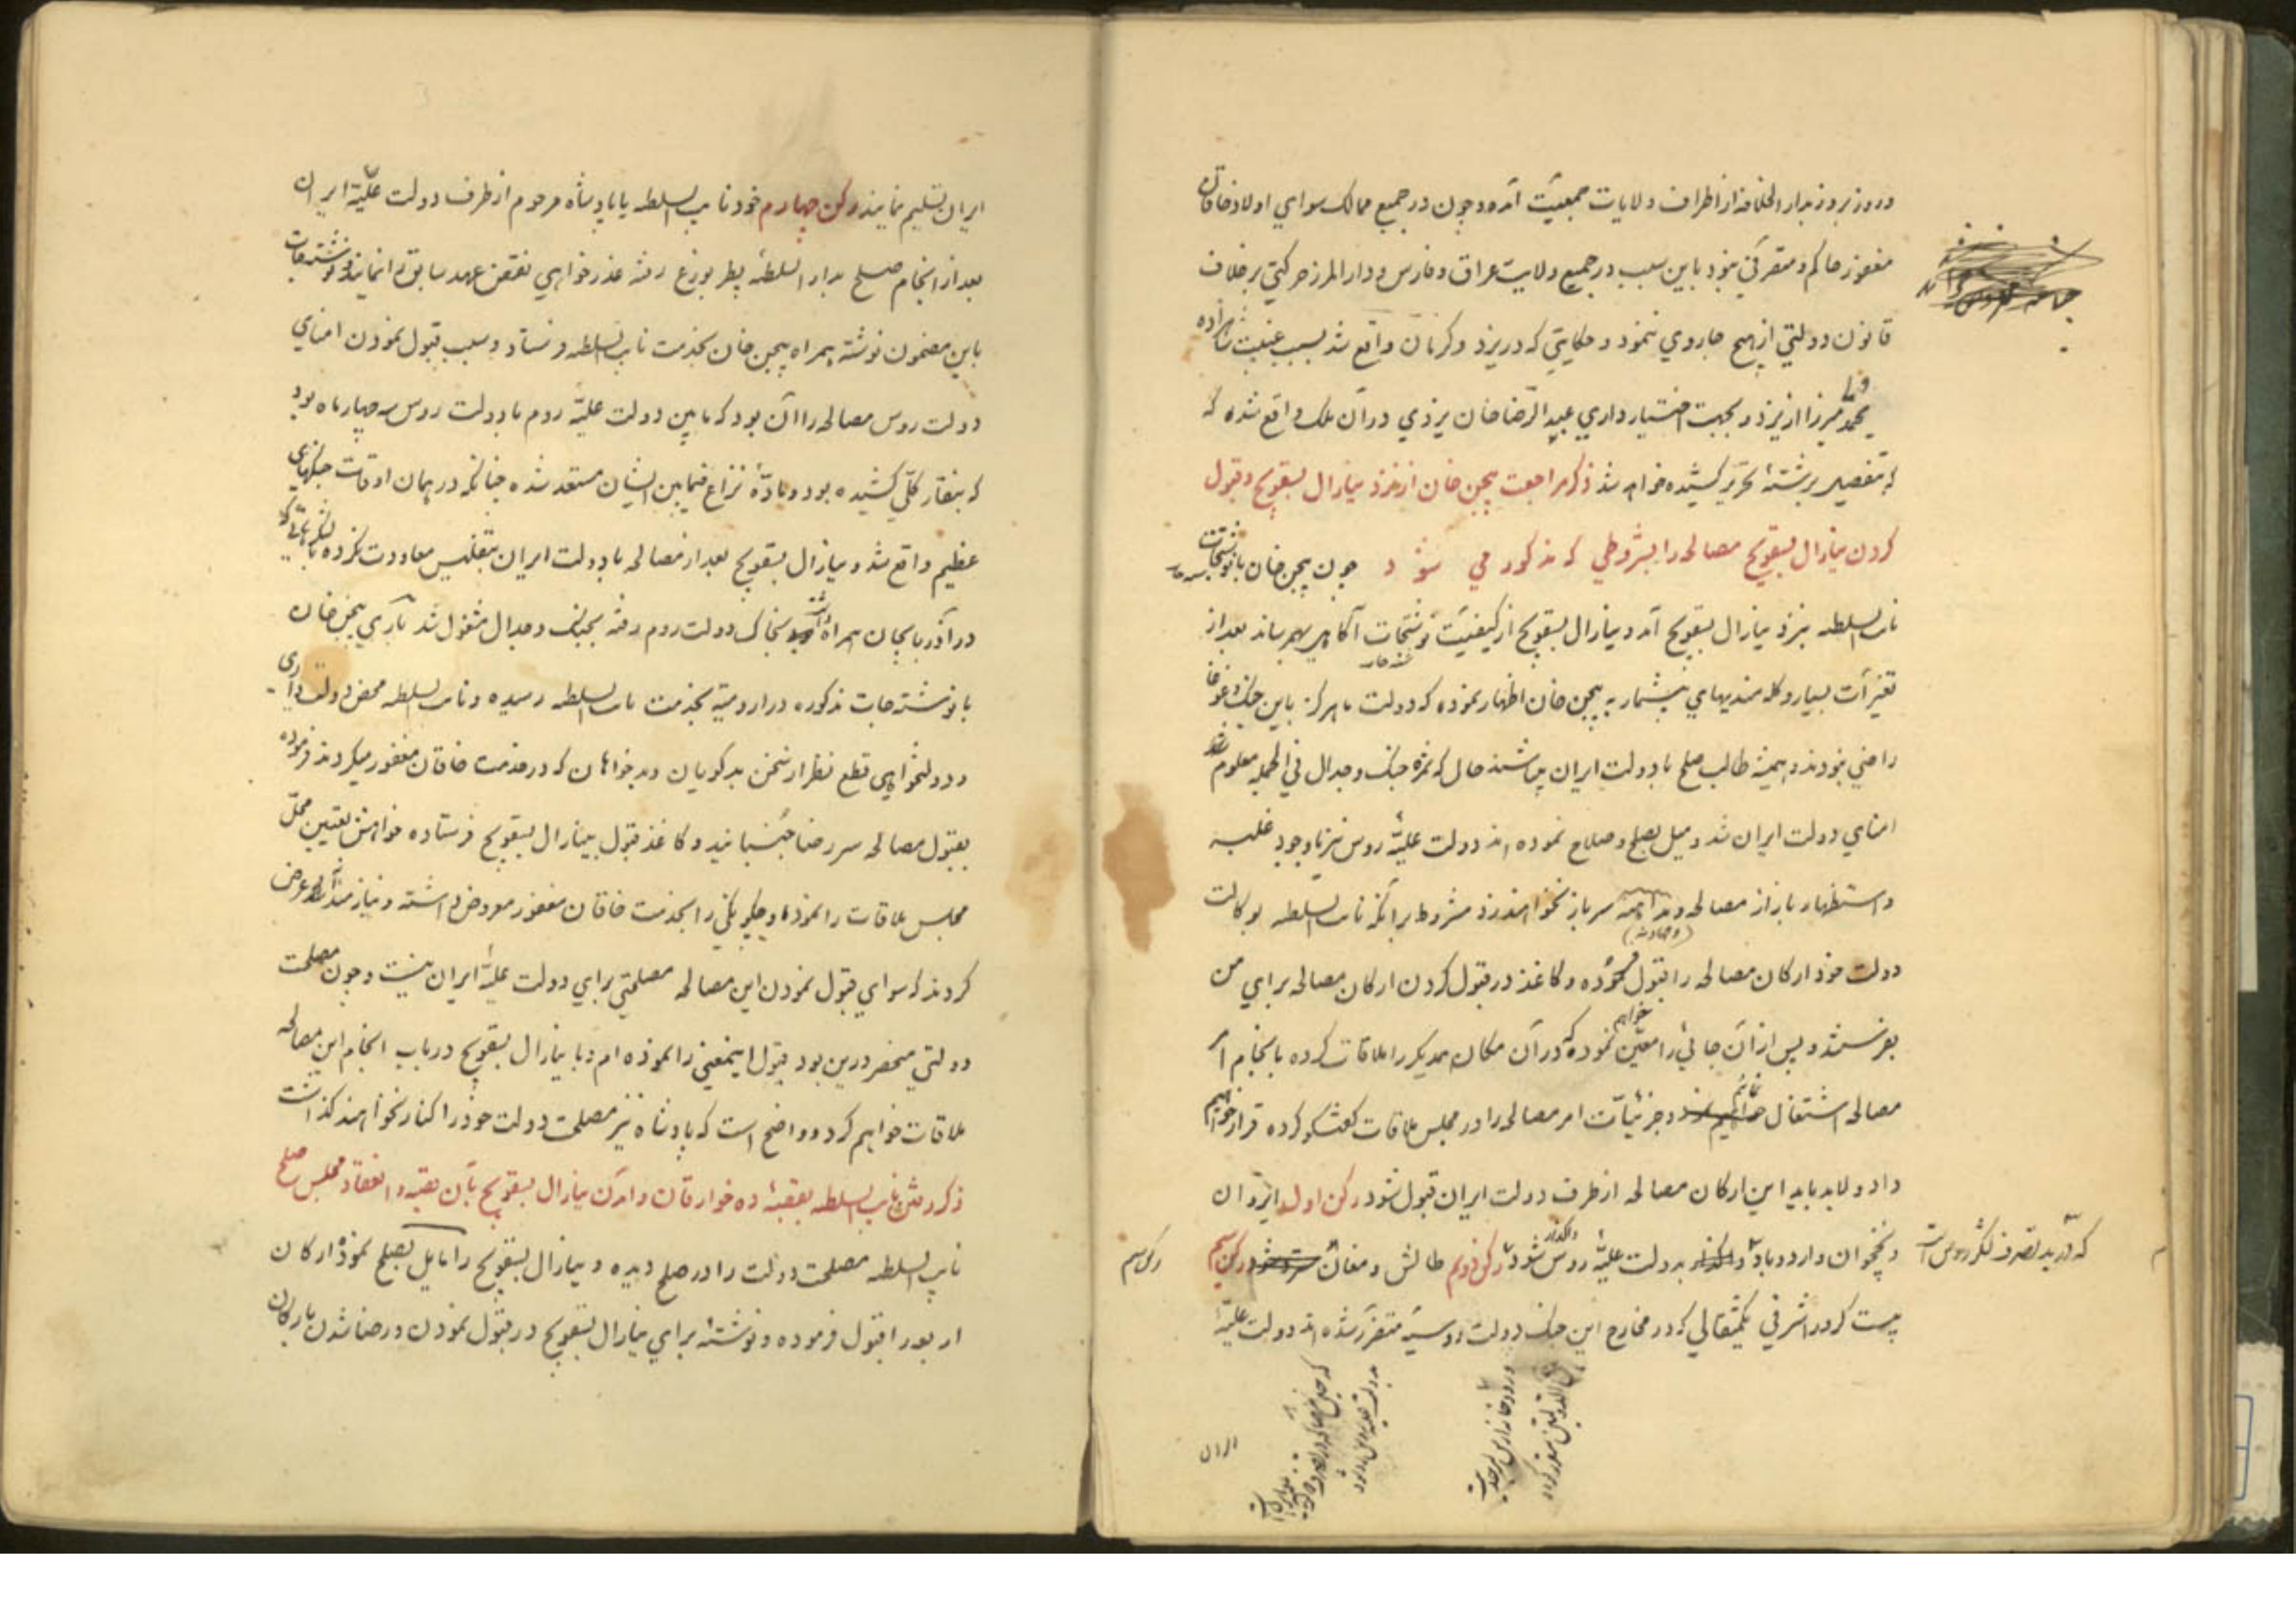 و روز بروز بدار الخلافه از اطراف ولایات جمعیّت آمده و چون در جمیع ممالک سوای اولاد خاقان
مغفور حاکم و متصرّفی نبود باین سبب در جمیع ولایت عراق و فارس و دار المرز حرکتی برخلاف
قانون دولتی از هیچ جا روی ننمود و حکایتی که در یزد و کرمان واقع شد بسبب غیبت شاهزاده
محمد ولی میرزا از یزد و بجهت اختیار داری عبد الرّضا خان یزدی در آن ملک واقع شده که
به تفصیل برشتهٔ تحریر کشیده خواهد شد ذکر مراجعت بیجن خان از نزد ینارال بسقویج و قبول
کردن ینارال بسقویج مصالحه را بشروطی که مذکور می شود چون بیجن خان با نوشتجات
نایب السلطه بنزد ینارال بسقویج آمد و ینارال بسقویج از کیفیّت نوشتجات آگاهی بهم رساند بعد از
تغیّرات بسیار و کله مندیهای بیشمار به بیجن خان اظهار نموده که دولت ما هرکز باین جنک و غوغا
راضی نبودند و همیشه طالب صلح با دولت ایران میباشند حال که ثمرهٔ جنک و جدال فی الجمله معلوم
امنای دولت ایران شد و میل بصلح و صلاح نموده اند دولت علیّهٔ روس نیز با وجود غلبه
و استظهار باز از مصالحه سرباز نخواهند زد مشروط برآنکه نایب السلطه بوکالت
دولت خود ارکان مصالحه را قبول فرموده و کاغذ در قبول کردن ارکان مصالحه برای من
بفرستند و پس از آن جائی را معیّن خواهم نموده که در آن مکان همدیکر را ملاقات کرده بانجام امر
مصالحه اشتغال نمائیم و جزئیّات امر مصالحه را در مجلس ملاقات کفتکو کرده قرار خواهیم
داد و لابد باید این ارکان مصالحه از طرف دولت ایران قبول شود رکن اول ایروان
که در ید تصرف لشکر روس است
و نخچوان و اردوباد واکذار بدولت علیّهٔ روس شود رکن دویم طالش و مغان رکن سیم
رکن سیم
بیست کرور اشرفی یکمثقالی که در مخارج این جنک دولت روسیّه متضرّر شده اند دولت علیّهٔ
ایران
ایران تسلیم نمایند رکن چهارم خود نایب السلطه یا پادشاه مرحوم از طرف دولت علیّهٔ ایران
بعد از انجام صلح بدار السلطهٔ پطربورغ رفته عذر خواهی نقض عهد سابق را نمایند و نوشتجات
باین مضمون نوشته همراه بیجن خان بخدمت نایب السلطه فرستاد و سبب قبول نمودن امنای
دولت روس مصالحه را آن بود که مابین دولت علیّهٔ روم با دولت روس سه چهار ماه بود
که بنقار کلّی کشیده بود و مادّهٔ نزاع فیمابین ایشان مستعد شده چنانکه در همان اوقات جنکهای
عظیم واقع شد و ینارال بسقویج بعد از مصالحه با دولت ایران بتفلیس معاودت نکرده با لشکرهائی که
در آذربایجان همراه داشت بخاک دولت روم رفته بجنک و جدال مشغول شد باری بیجن خان
با نوشتجات مذکوره در ارومیّه بخدمت نایب السلطه رسیده و نایب السلطه محض دولت داری
و دولتخواهی قطع نظر از سخن بدکویان و بدخواهان که در خدمت خاقان مغفور میکردند فرموده
بقبول مصالحه سر رضا جنبانید و کاغذ قبول بینارال بسقویج فرستاده خواهش تعیین محلّ
مجلس ملاقات را نمود و چکونکی را بخدمت خاقان مغفور معروض داشته و نیازمندانه عرض
کردند که سوای قبول نمودن این مصالحه مصلحتی برای دولت علیّهٔ ایران نیست و چون مصلحت
دولتی منحصر درین بود قبول اینمعنی را نموده ام و با ینارال بسقویج در باب انجام این مصالحه
ملاقات خواهیم کرد و واضح است که پادشاه نیز مصلحت دولت خود را کنار نخواهند کذاشت
ذکر رفتن نایب السلطه بقصبهٔ ده خوارقان و آمدن ینارال بسقویج بآن قصبه و انعقاد مجلس صلح
نایب السلطه مصلحت دولت را در صلح دیده و ینارال بسقویج را مایل بصلح نموده ارکان
اربعه را قبول فرموده و نوشتهٔ برای ینارال بسقویج در قبول نمودن و رضا شدن بارکان